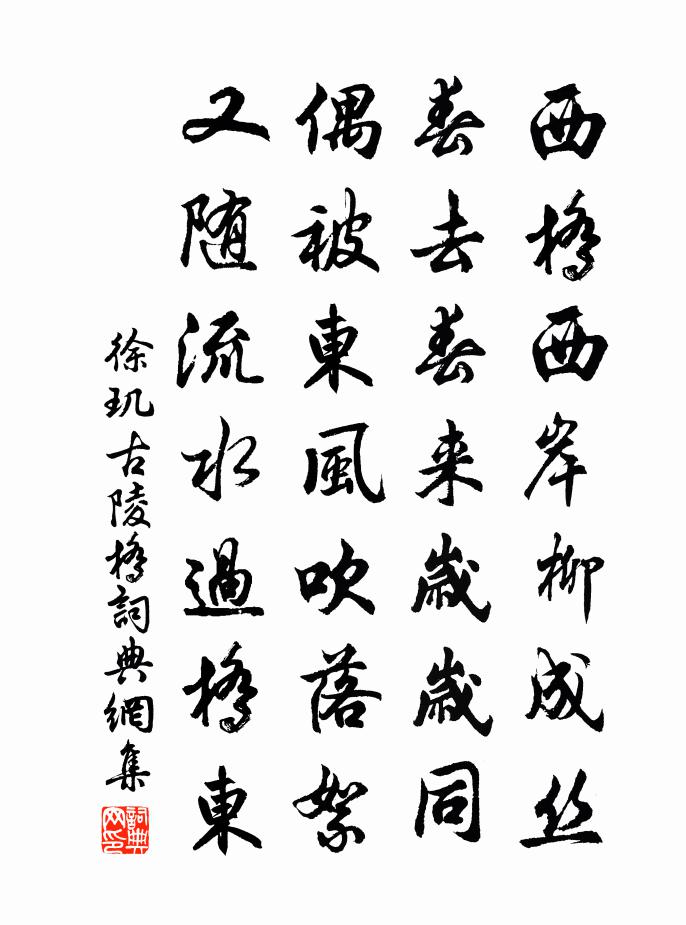 西橋西岸柳成丝
春去春来歲歲同
偶被東風吹落絮
又随流水過橋東
徐玑古陵橋詞典網集
詞典网印